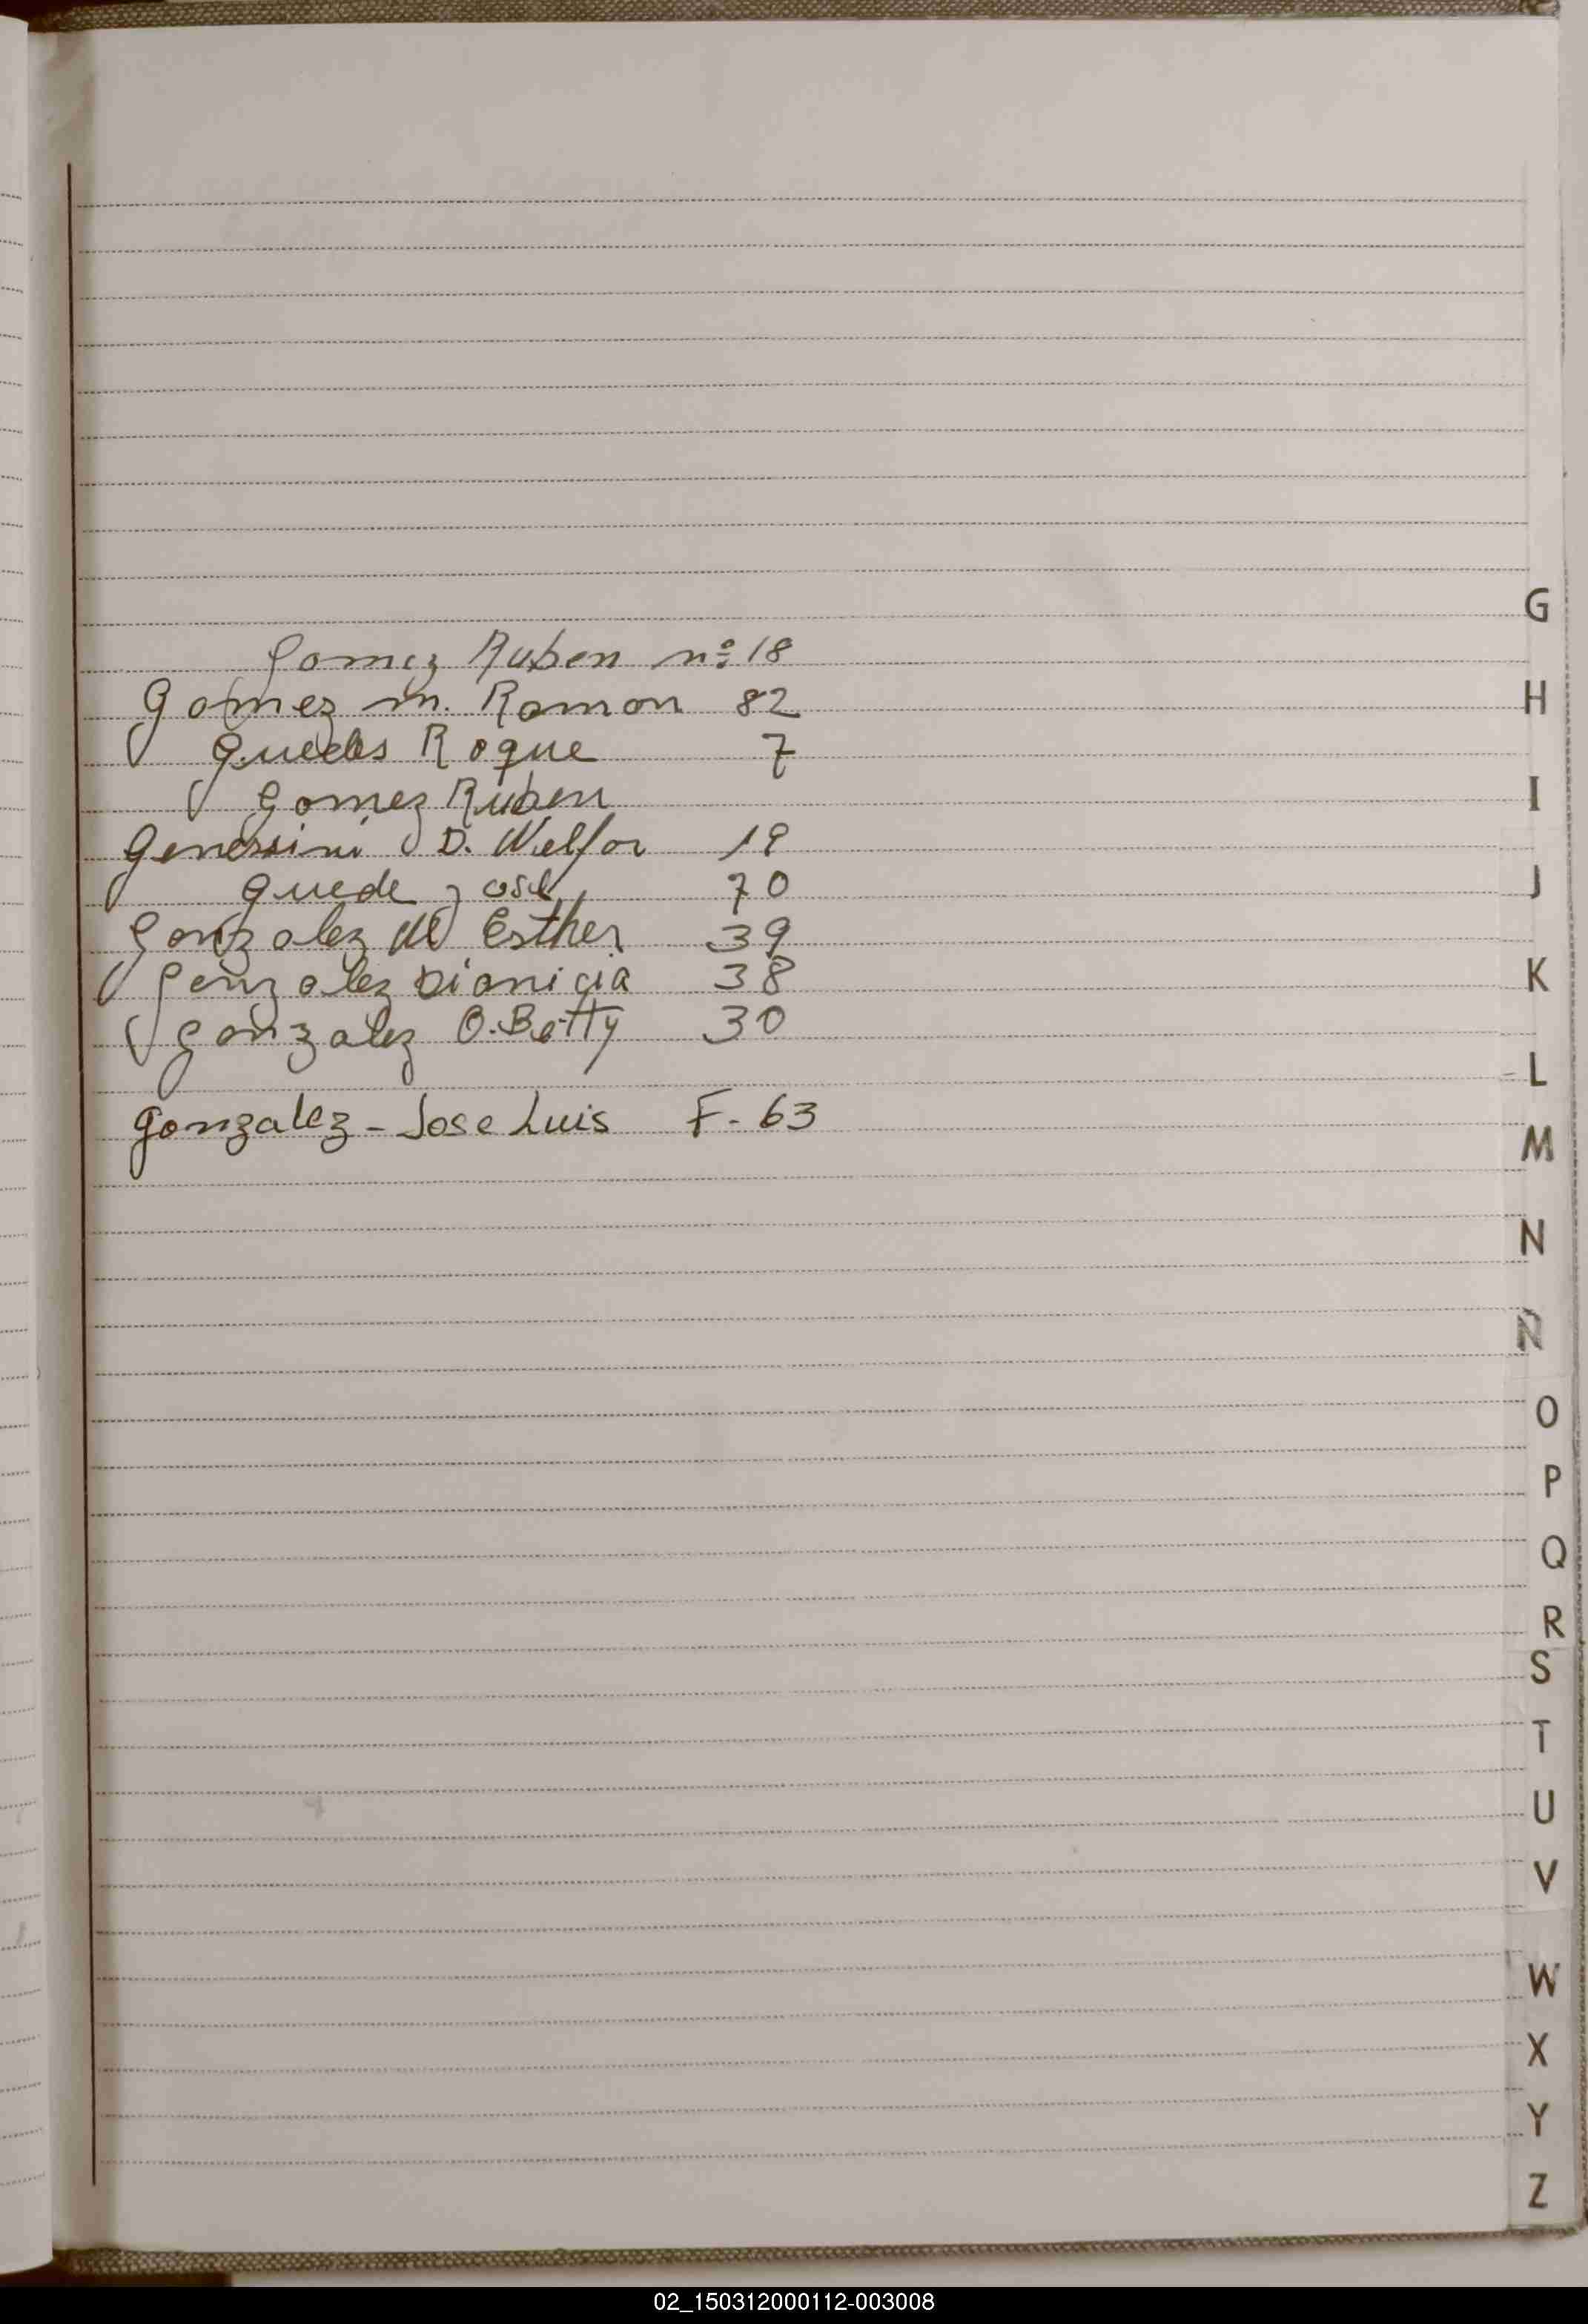 Gomez Ruben nº 18
Gomez m. Ramon 82
Guedes Roque 7
Gomez Ruben
Genessini D. Welfor 19
Guede Jose 70
Gonzalez M Esther 39
Gonzalez Dionicia 38
Gonzalez O. Betty 30
Gonzalez - Jose Luis F- 63
G
H
I
J
K
L
M
N
Ñ
O
P
Q
R
S
T
U
V
W
X
Y
Z
02_150312000112-003008